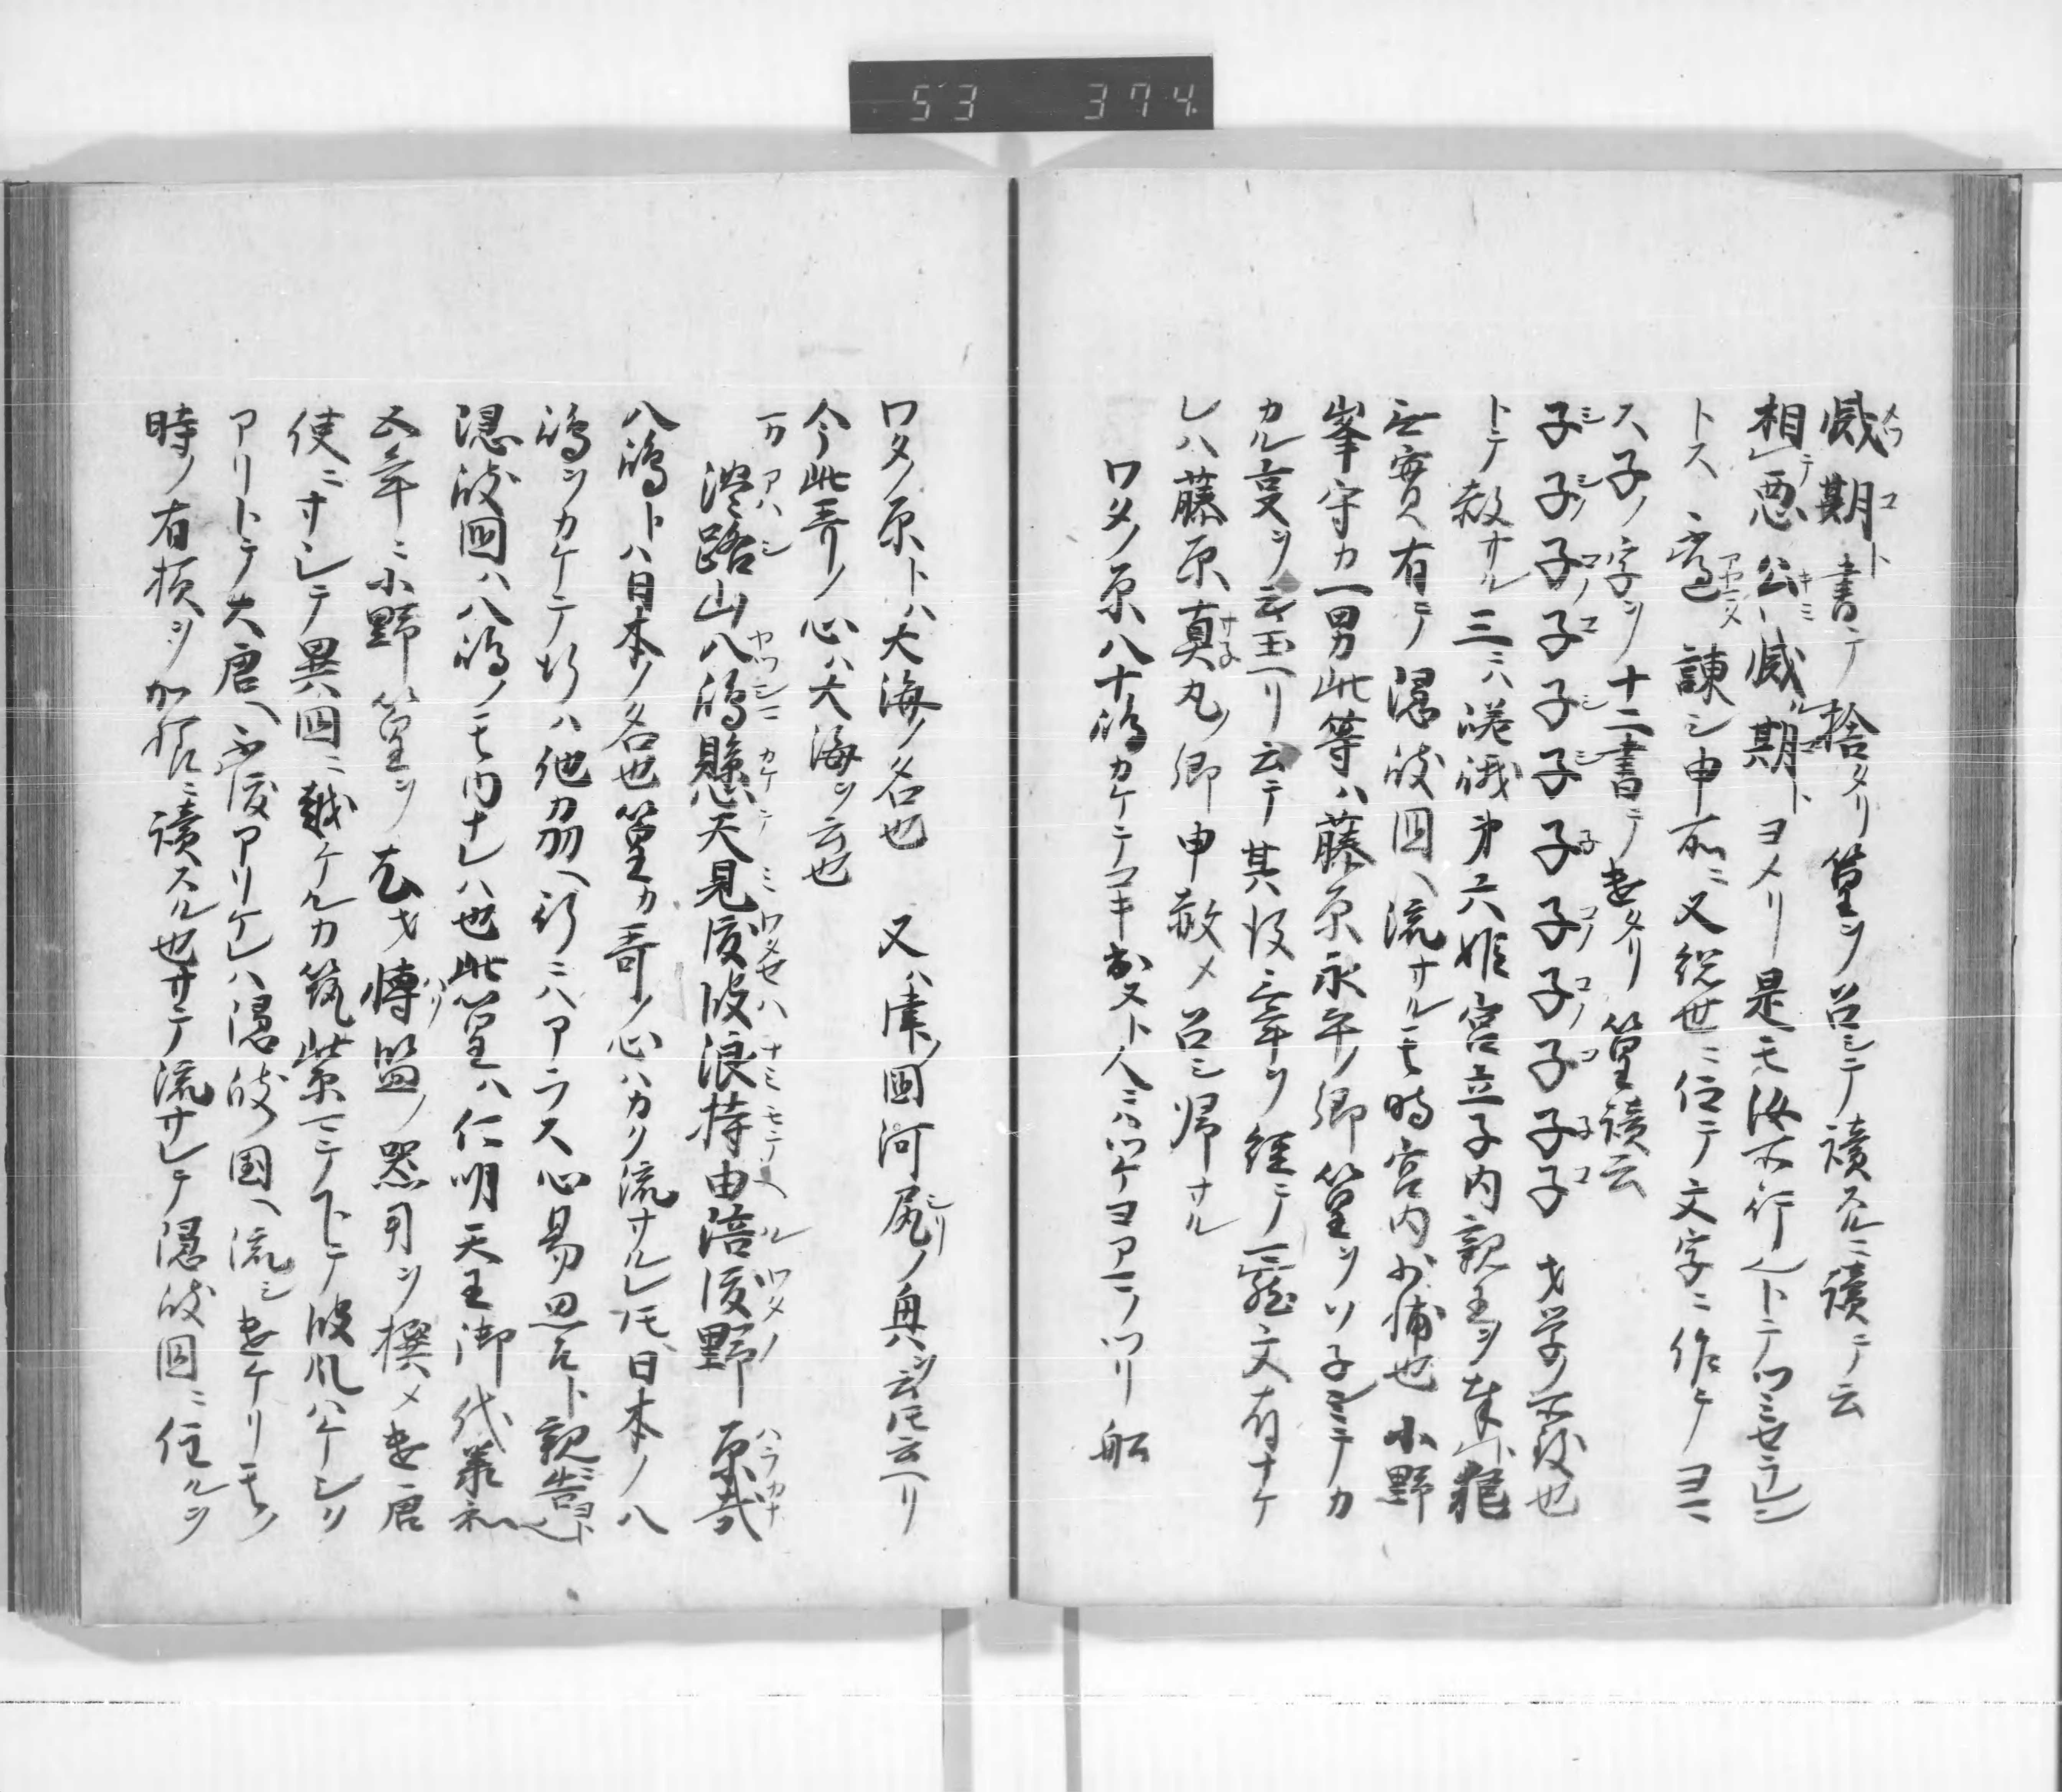 53 374
滅期ト書テ捨タリ篁ヲ召シテ讀スルニ讀テ云
相テ悪公キミ滅期トヨメリ是モ汝所行トテツミセラレン
トス 諫シ申所ニ又後世ニ位テ文字ニ作テヨマ
ス子ノ字ヲ十二書テ遣タリ篁讀云
子子子子子子子子子子子子 才学ノ所致也
トテ赦サル三ニハ嵯峨第六姫宮立子内親王ヲ
無實有テ隠岐国ヘ流サルモ時宮内少輔也小野
峯守カ一男此等ハ藤原永平ノ卿篁ヲソ子ミテカ
カル夏ヲ云玉ヘリ云テ其後三年ヲ経テ 文有ナケ
レハ藤原真丸ノ卿申赦メ召シ帰サル
ワタノ原八十嶋カケテコキ出ヌト人ニハツケヨアマノツリ舩
ワタノ原トハ大海ノ名也 又ハ津ノ国河尻ノ奥ヲ云トモ云ヘリ
今此哥ノ心ハ大海ヲ云也
万 淡路山八嶋懸天見度波浪持由涪渡野原哉
アハシ ヤツシニ カケテ ミワタセハ ナミモテ ル ワタノ ハラカナ
八嶋トハ日本ノ名也篁カ哥ノ心ハカク流サルレ𪜈日本ノ八
嶋ヲカケテ行ハ他カ州ヘ行ニハアラス心易思ヘト親ニ告ヨト也
隠岐国ハ八嶋ノモ内ナレハ也此篁ハ仁明天王御代承和
五年ニ小野篁ヲ 才博覧ノ器用ヲ撰メ遣唐
使ニナシテ異国ニ越ケルカ筑紫マテ下テ波風ハケシリ
アリトテ大唐ヘ不渡アリケレハ隠岐国ヘ流シ遣ケリモノ
時ノ有様ヲ加様ニ讀スル也サテ流サレテ隠岐国ニ住ルヲ